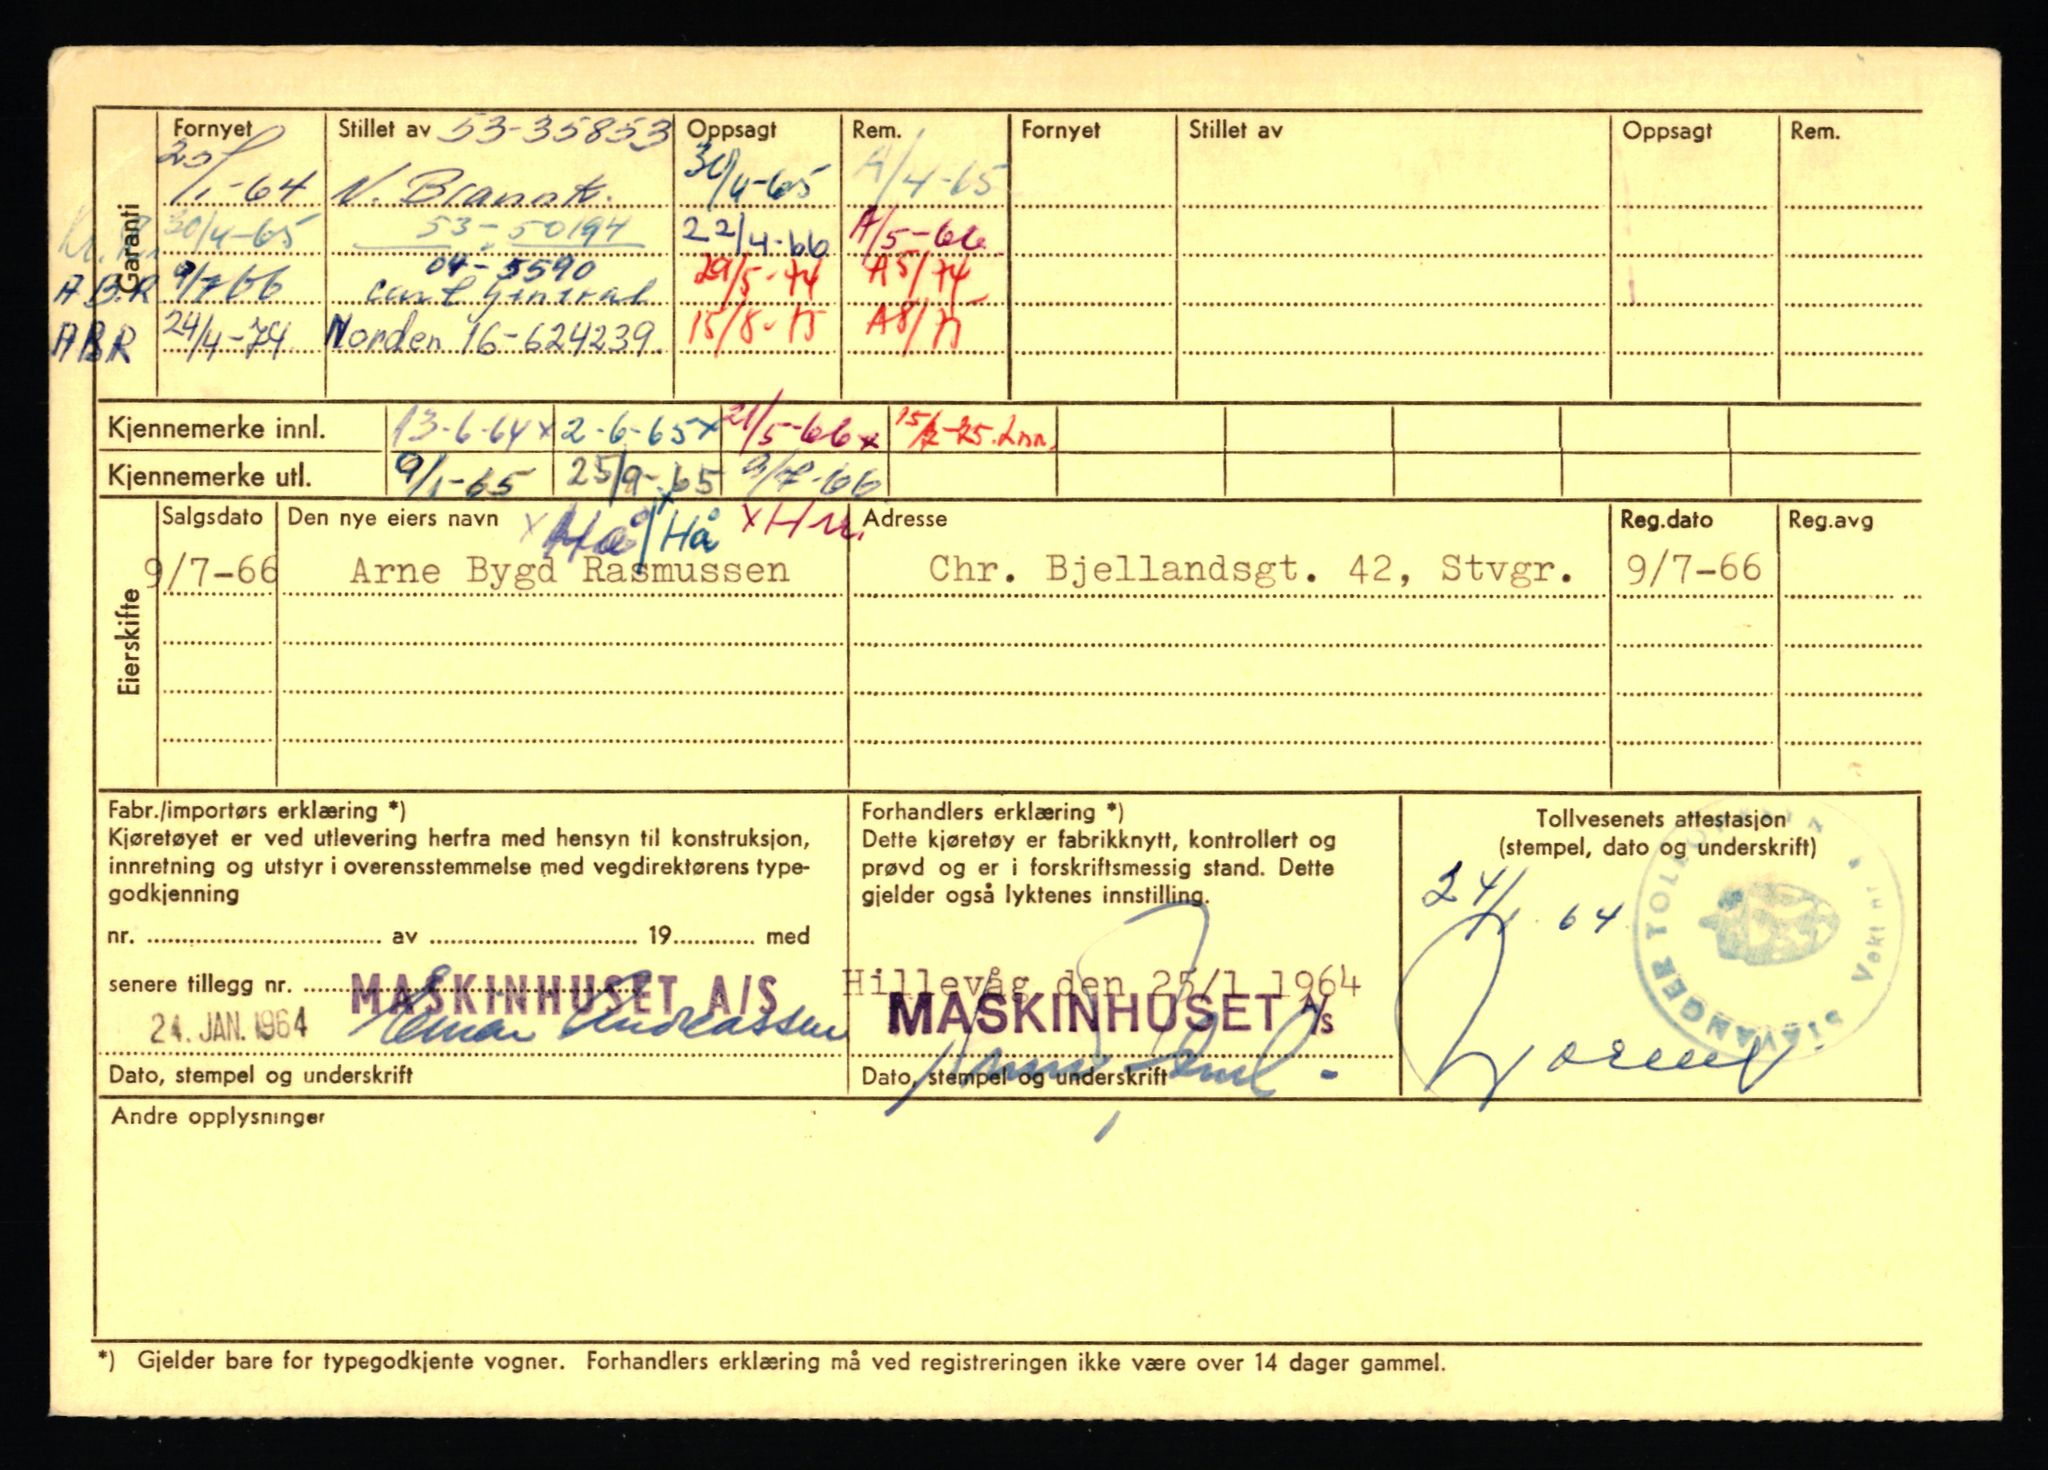 Garanti
Fornyet Stillet av 53-35853 Oppsagt Rem. Fornyet Stillet av Oppsagt Rem.
/1-64 N. Brannk. 30/4-65 A/4-65
30/4-65 53-50194 22/4-66 A/5-66
04-5590
A.B.R 9/7 66 General 29/5-74 A 5/74
ABR 24/4-74 Norden 16-624239. 15/8-75 A8/75
Kjennemerke innl. 13-6-64x 2-6-65x 21/5-66x 15/ -75. Inn.
Kjennemerke utl. 9/1-65 25/9-65 9/7-66
Eierskifte
Salgsdato Den nye eiers navn x Hå x/Hå x Adresse Reg.dato Reg.avg
9/7-66 Arne Bygd Rasmussen Chr. Bjellandsgt. 42, Stvgr. 9/7-66
Fabr./importørs erklæring *)
Kjøretøyet er ved utlevering herfra med hensyn til konstruksjon,
innretning og utstyr i overensstemmelse med vegdirektørens type-
godkjenning
nr. av 19 med
senere tillegg nr.
MASKINHUSET A/S
24. JAN. 1964 Einar Andreassen
Dato, stempel og underskrift
Forhandlers erklæring *)
Dette kjøretøy er fabrikknytt, kontrollert og
prøvd og er i forskriftsmessig stand. Dette
gjelder også lyktenes innstilling.
Hillevåg den 25/1 1964
MASKINHUSET A/S
Dato, stempel og underskrift
Tollvesenets attestasjon
(stempel, dato og underskrift)
24/1 64
STAVANGER Vekt nr
Andre opplysninger
*) Gjelder bare for typegodkjente vogner. Forhandlers erklæring må ved registreringen ikke være over 14 dager gammel.